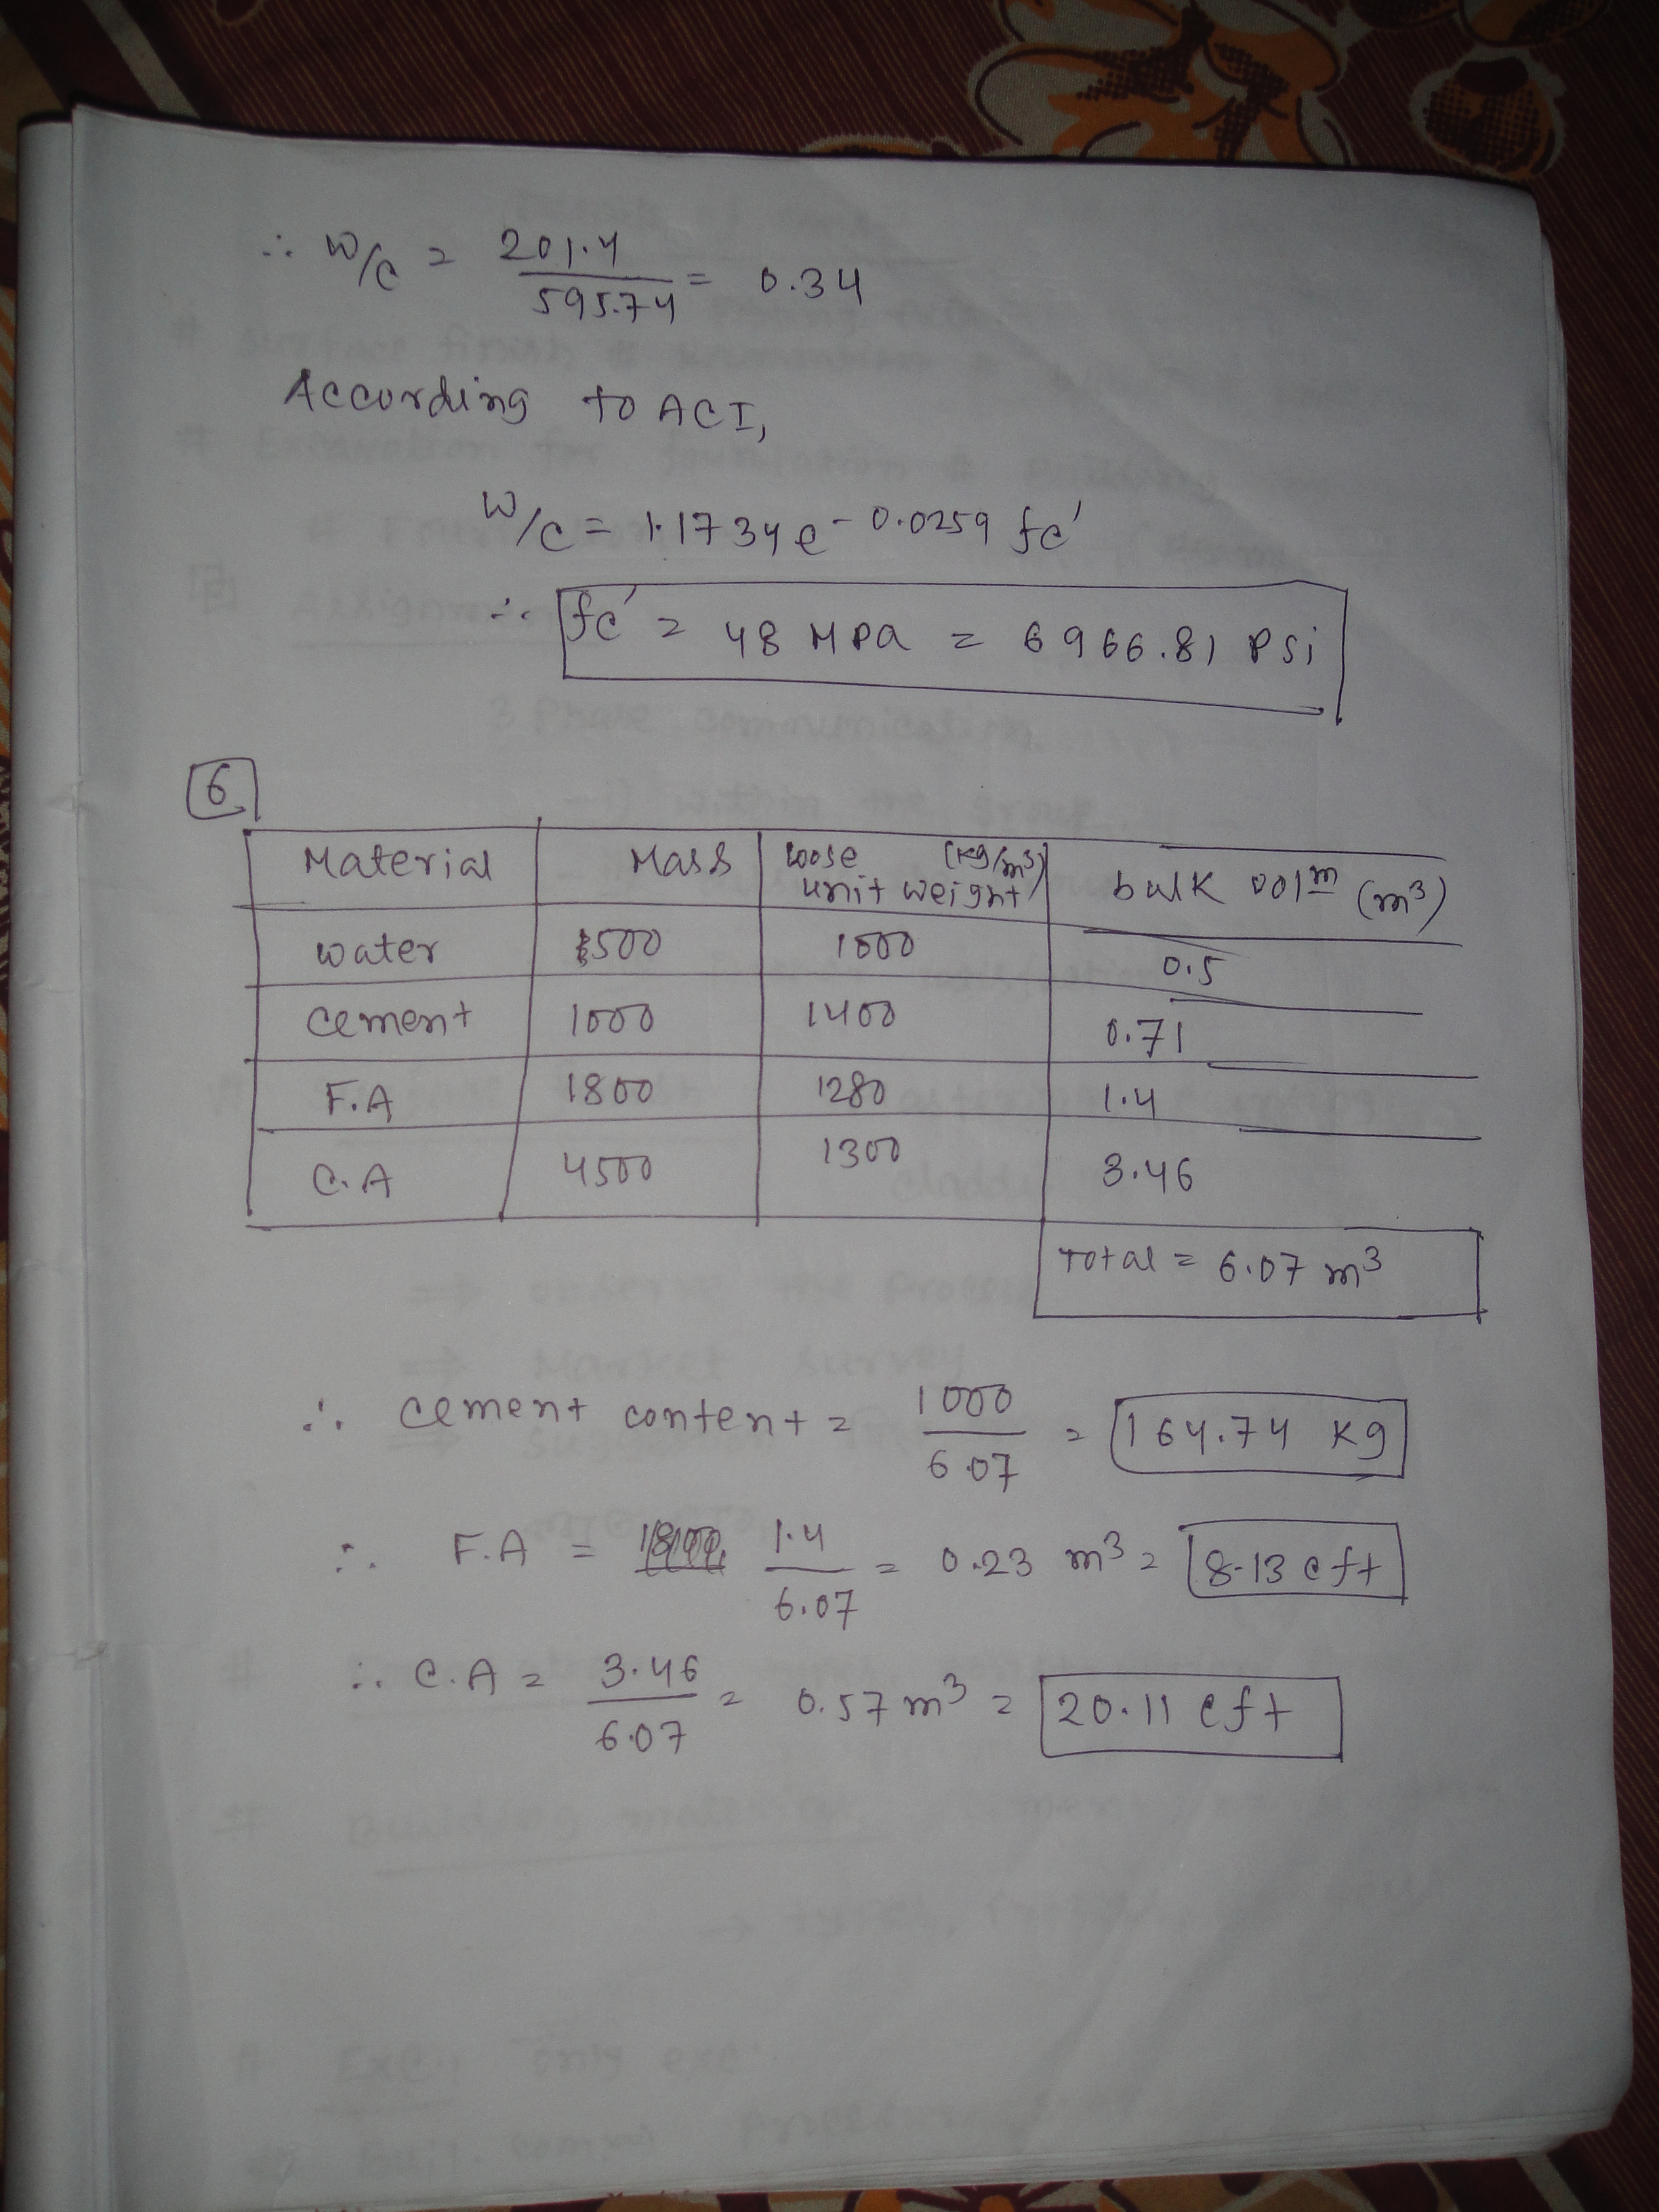 ∴ W/C = 201.4 / 595.74 = 0.34
According to ACI,
W/C = 1.1734 e^-0.0259 fc'
∴ fc' = 48 MPa = 6966.81 Psi
6
Material | Mass | Loose unit weight (kg/m³) | bulk volm (m³)
water | 500 | 1000 | 0.5
cement | 1000 | 1400 | 0.71
F.A | 1800 | 1280 | 1.4
C.A | 4500 | 1300 | 3.46
Total = 6.07 m³
∴ cement content = 1000 / 6.07 = 164.74 kg
∴ F.A = 1.4 / 6.07 = 0.23 m³ = 8.13 cft
∴ C.A = 3.46 / 6.07 = 0.57 m³ = 20.11 cft